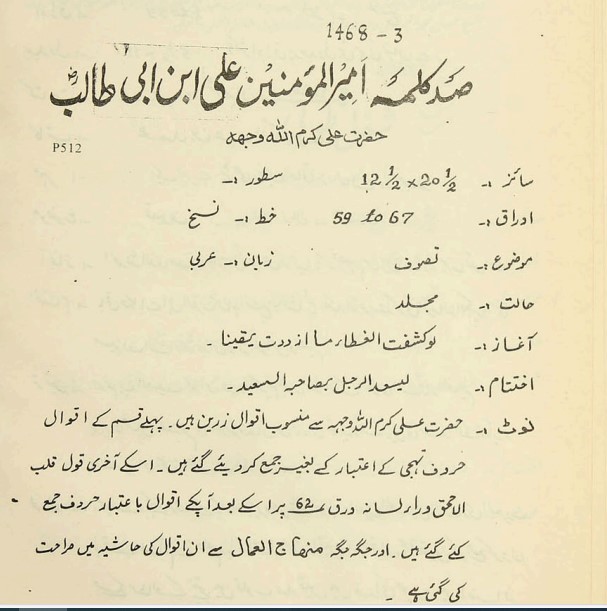 1468 - 3
صد کلمہ امیرالمؤمنین علی ابن ابی طالبؓ
حضرت علی کرم اللہ وجھہ
P512
سائز :۔ 12 ½ × 20 ½ سطور :۔
اوراق :۔ 59 to 67 خط :۔ نسخ
موضوع :۔ تصوف زبان :۔ عربی
حالت :۔ مجلد
آغاز :۔ لو کشفت الغطاء ما ازددت یقینا ۔
اختتام :۔ لیسعد الرجل بمصاحبہ السعید ۔
نوٹ :۔ حضرت علی کرم اللہ وجہہ سے منسوب اقوال زرین ہیں ۔ پہلے قسم کے اقوال
حروف تہجی کے اعتبار کے بغیر جمع کر دیئے گئے ہیں ۔ اسکے آخری قول قلب
الاحمق وراء لسانہ ورق 62 پر اسکے بعد آپکے اقوال باعتبار حروف جمع
کئے گئے ہیں ۔ اور جگہ جگہ منھاج العمال سے ان اقوال کی حاشیہ میں صراحت
کی گئی ہے ۔